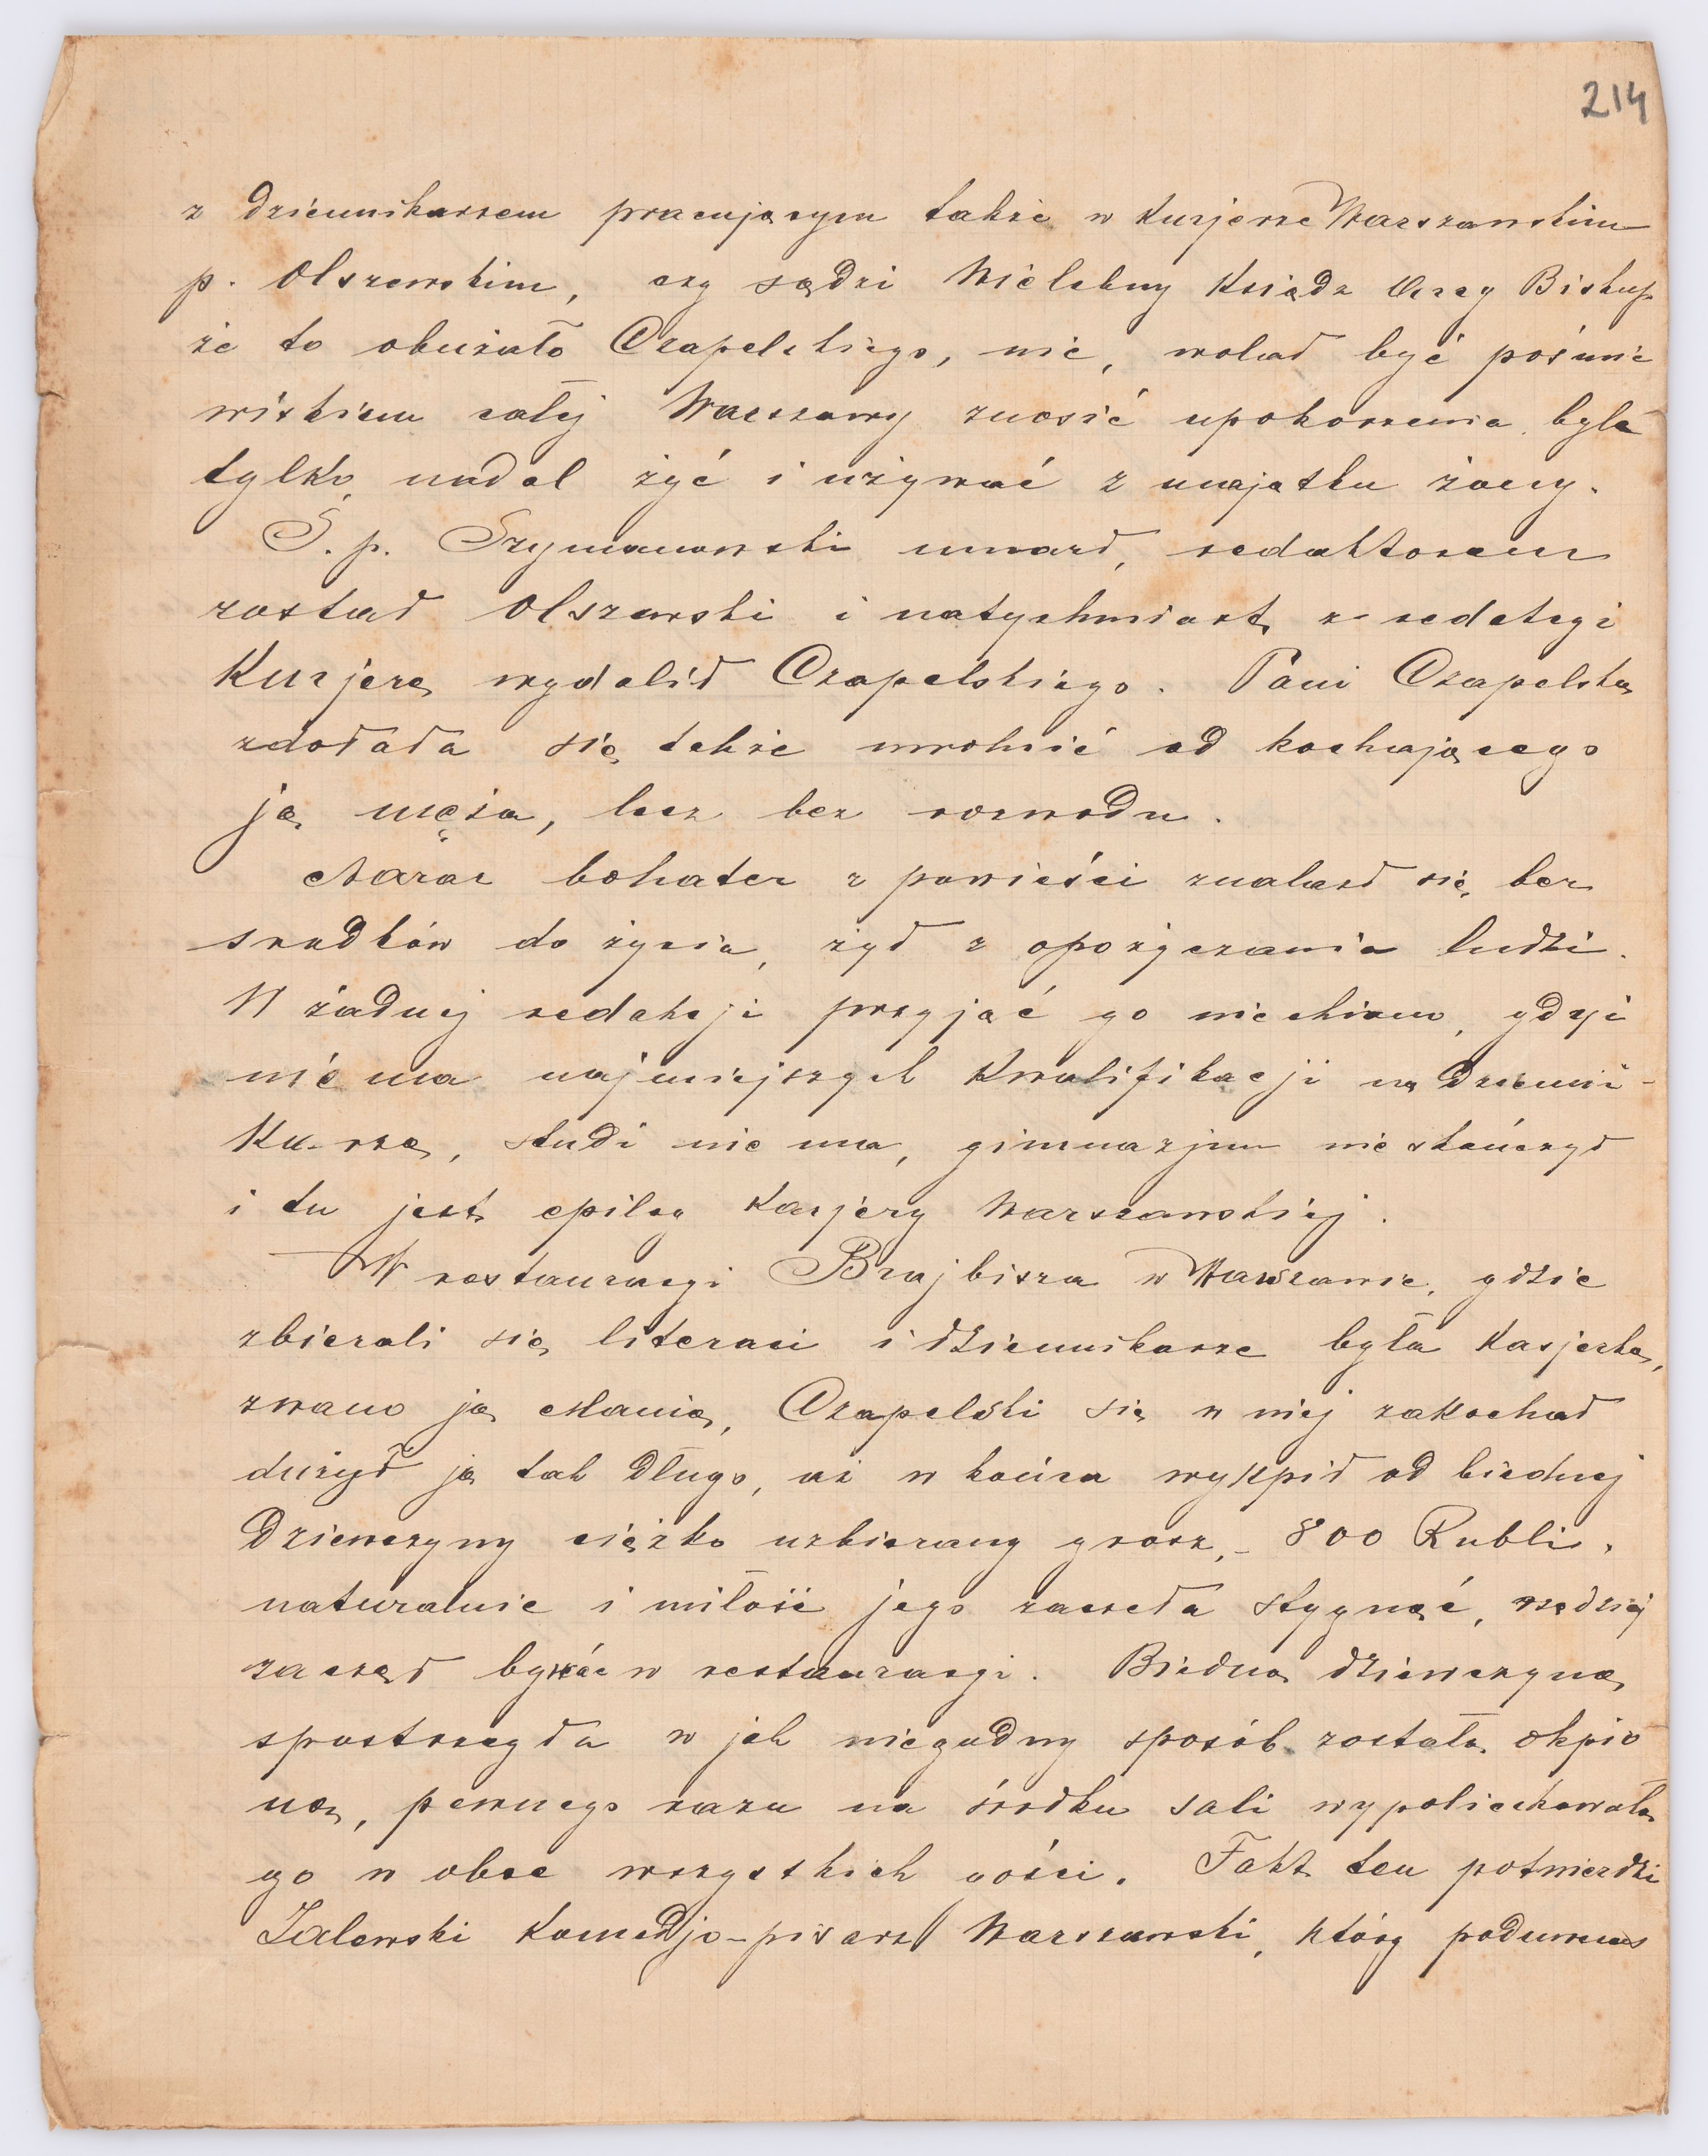 214
z dziennikarzem pracującym także w Kurjerze Warszawskim
p. Olszewskim, czy sądzi Wielebny Ksiądz Arcy Biskup
że to obużało Czapelskiego, nie, wolał być pośmie
wiskiem całej Warszawy znosić upokorzenia byle
tylko nadal żyć i używać z majątku żony.
Ś. p. Szymanowski umarł, redaktorem
został Olszewski i natychmiast z redakcyi
Kurjera wydalił Czapelskiego. Pani Czapelska
zdołała się także uwolnić od kochającego
ją męża, lecz bez rozwodu.
Naraz bohater z powieści znalazł się bez
srodków do życia, żył z opożyczania ludzi.
W żadnej redakcji przyjąć go nie chiano, gdyż
nie ma najmniejszych Kwalifikacji na dzienni-
Karza, studi nie ma, gimnazjum nie skończył
i tu jest epilog Karjery Warszawskiej.
W restauracyi Brajbisza w Warszawie, gdzie
zbierali się literaci i dziennikarze była Kasjerka,
zwano ją Manią, Czapelski się w niej zakochał
durzył ją tak długo, aż w końcu wykpił od biednej
Dziewczyny ciężko uzbierany grosz,- 800 Rubli,
naturalnie i miłość jego zaczeła stygnąć, rzedziej
zaczął bywać w restauracyi. Biedna dziewczyna
spostrzegła w jak niegodny sposób została okpio
na, pewnego razu na środku sali wypoliczkowała
go w obec wszystkich gości. Fakt ten potwierdzi
Zalewski Komedjo-pisarz Warszawski, który